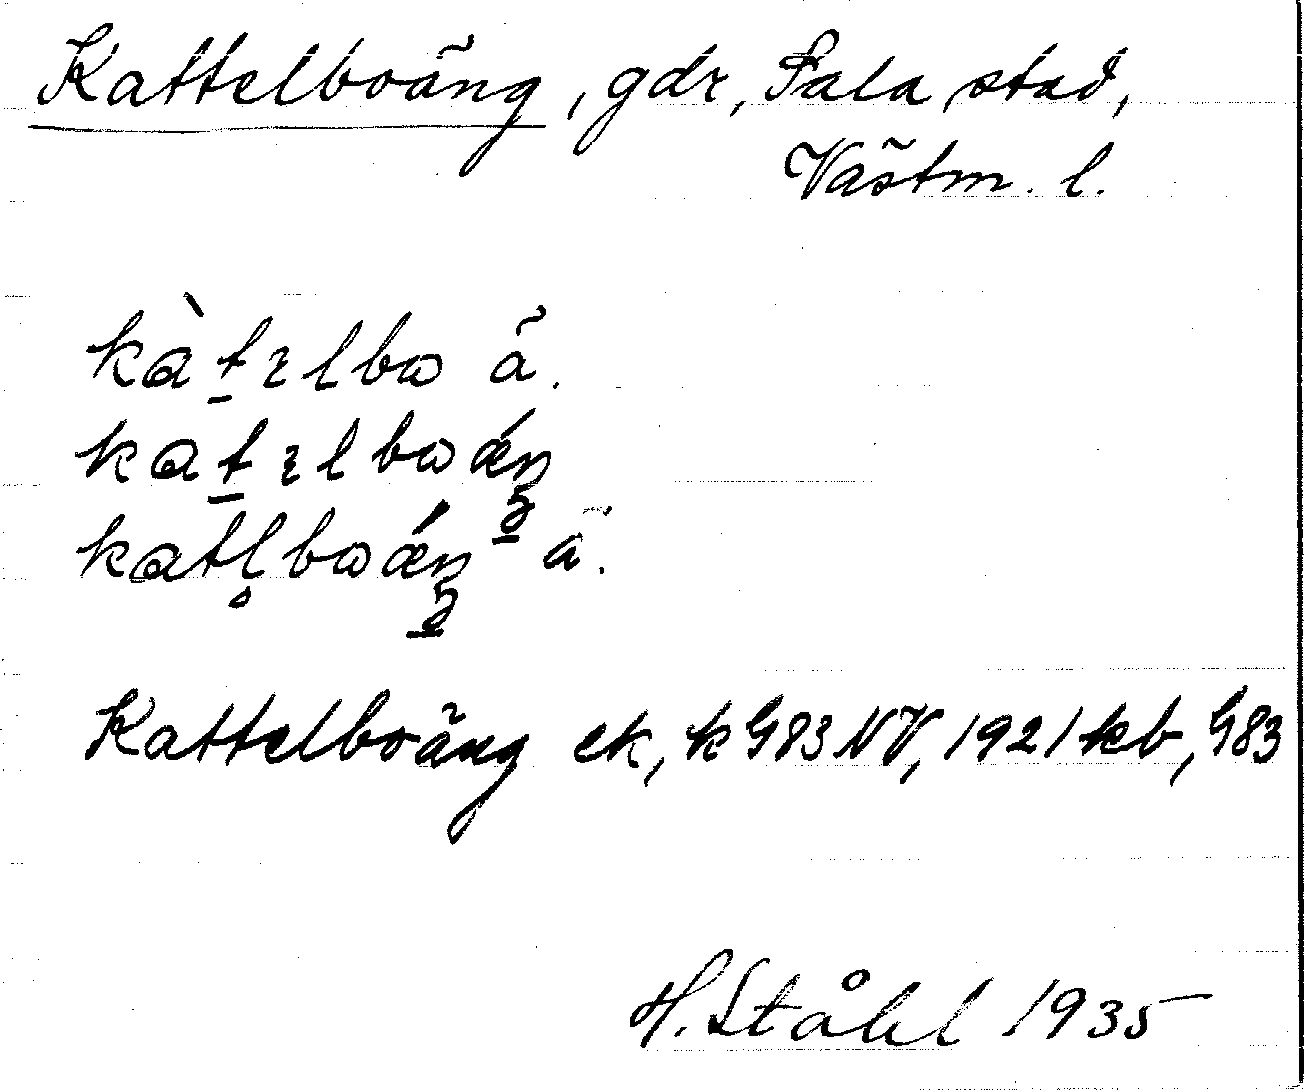 Kattelboäng, gdr, Sala stad,
Västm. l.
kàt̠ɿlbɷ ä.
kat̠ɿlbɷǽŋ̠
katl̥bɷǽŋ̠ ä.
Kattelboäng ek, k G83 NV, 1921 kb, G83
H. Ståhl 1935